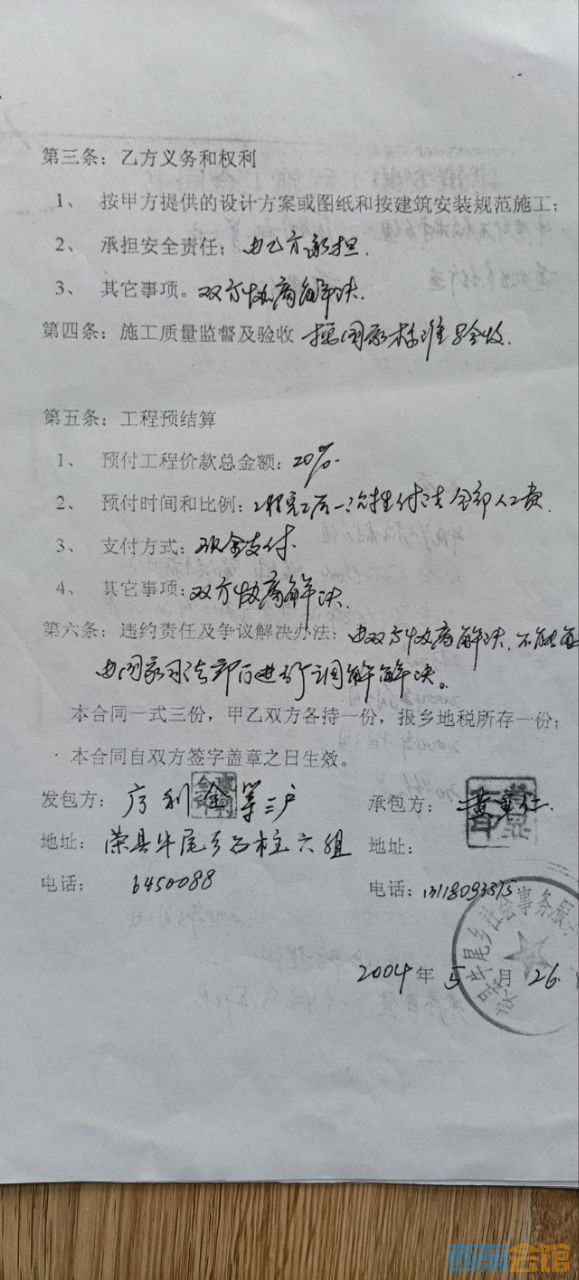 第三条：乙方义务和权利
1、 按甲方提供的设计方案或图纸和按建筑安装规范施工；
2、 承担安全责任；由乙方承担.
3、 其它事项。双方协商解决.
第四条：施工质量监督及验收 按国家标准验收.
第五条：工程预结算
1、 预付工程价款总金额：20%.
2、 预付时间和比例：工程完工后一次性付清全部人工费.
3、 支付方式：现金支付.
4、 其它事项：双方协商解决.
第六条：违约责任及争议解决办法：由双方协商解决.不能
由国家司法部门进行调解解决。
本合同一式三份，甲乙双方各持一份，报乡地税所存一份；
本合同自双方签字盖章之日生效。
发包方： 利金等三户 承包方：
地址：荣县牛尾乡石柱六组 地址：
电话： 6450088 电话：
牛尾乡社会事务服
2004年 5 月 26
西祠会馆